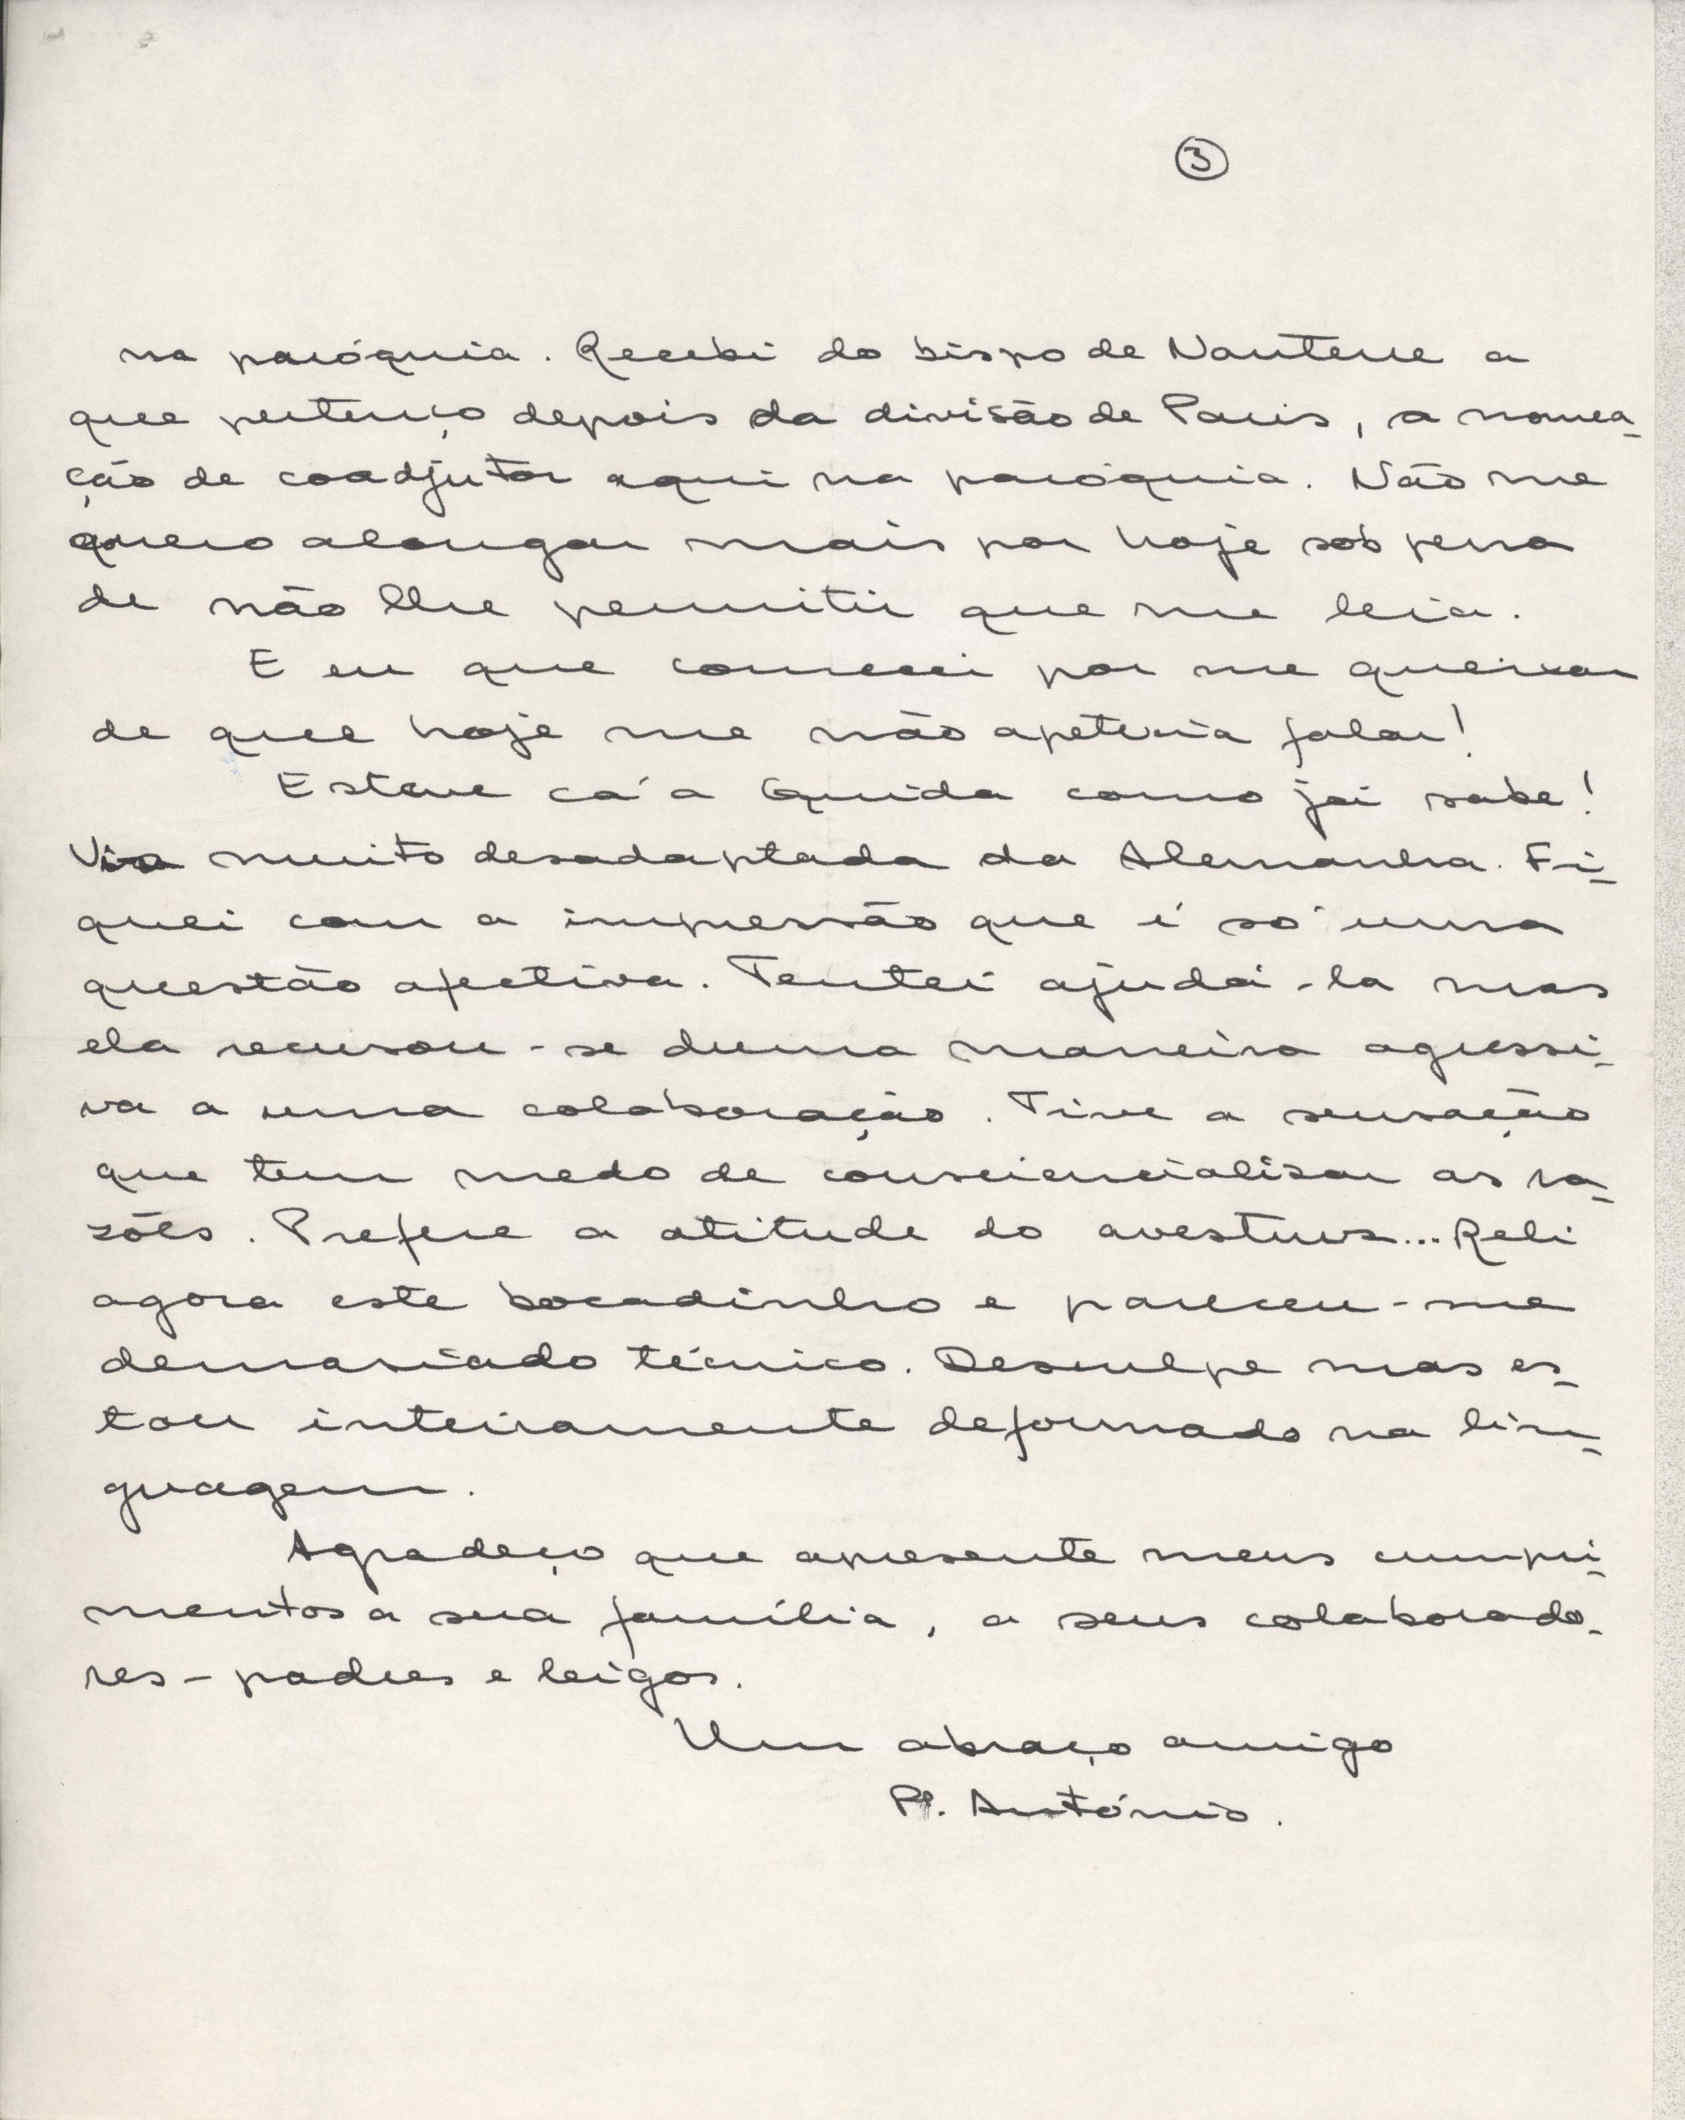 ③
na paróquia. Recebi do bispo de Nanterre a
que pertenço depois da divisão de Paris, a nomea-
ção de coadjutor aqui na paróquia. Não me
quero alongar mais por hoje sob pena
de não lhe permitir que me leia.
E eu que comecei por me queixar
de que hoje me não apetecia falar!
Esteve cá a Guida como já sabe!
Vi-a muito desadaptada da Alemanha. Fi-
quei com a impressão que é só uma
questão afectiva. Tentei ajudá-la mas
ela recusou-se duma maneira agressi-
va a uma colaboração. Tive a sensação
que tem medo de consciencialisar as ra-
zões. Prefere a atitude do avestruz... Reli
agora este bocadinho e pareceu-me
demasiado técnico. Desculpe mas es-
tou inteiramente deformado na lin-
guagem.
Agradeço que apresente meus cumpri-
mentos a sua família, a seus colaborado-
res - padres e leigos.
Um abraço amigo
Pe. António.